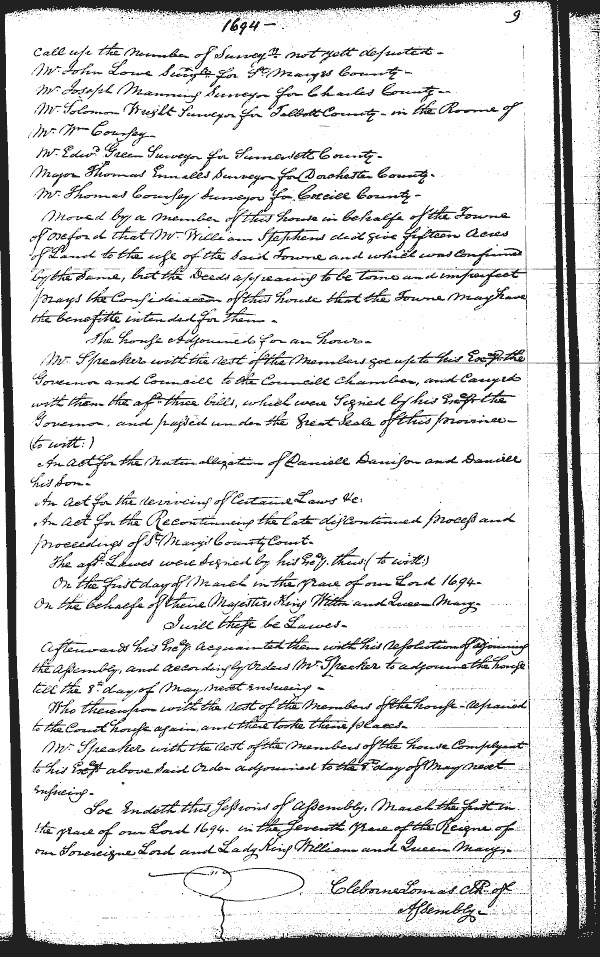 1694 –
9
call up the number of Survey.rs not yett deputed –
Mr John Lowe for St Maryes County –
Mr Joseph Manning Surveyor for Charles County –
Mr Solomon Wright Surveyor for Talbott County – in the Roome of
Mr Wm Coursey –
Mr Edwd Green Surveyor for Sumersett County –
Major Thomas Ennalls Surveyor for Dorchester County –
Mr Thomas Coursey Surveyor for Coecill County –
Moved by a member of this house in behalfe of the Towne
of Oxeford that Mr William Stephens did give fifteen Acres
of Land to the use of the said Towne and which was confirmed
by the Same, but the Deeds appearing to be torne and imperfect
prays the Consideracon of this house that the Towne may have
the benefitte intended for them –
The house Adjourned for an hour –
Mr Speaker with the rest of the Members goe up to his Excy the
Governor and Councill to the Councill Chamber, and Carryed
with them the afd three bills, which were Signed by his Excy the
Governor, and passed under the Great Seale of this province –
(to witt:)
An Act for the Naturallization of Daniell Danison and Daniell
his Son –
An Act for the reviveing of Certaine Laws &c:
An Act for the Recontinuing the late discontinued process and
proceedings of St Marys County Court –
The afd Lawes were Signed by his Excy. thus (to witt:)
On the first day of March in the yeare of our Lord 1694 –
On the behalfe of theire Majesties King Willm and Queen Mary –
I will these be Lawes –
Afterwards his Excy Acquainted them with his resolution of Adjourning
the Assembly, and Accordingly Orders Mr Speaker to adjourne the house
till the 8th day of May next ensueing –
Who thereupon with the rest of the Members of the house repaired
to the Court house again and there tooke their places –
Mr Speaker with the rest of the Members of the house Complyant
to his Excys above said Order adjourned to the 8th day of May next
ensueing –
Soe Endeth this Sessions of Assembly, March the first in
the yeare of our Lord 1694. in the Seventh yeare of the Reigne of
our Sovereigne Lord and Lady King William and Queen Mary –
Cleborne Lomas Clk of
Assembly –